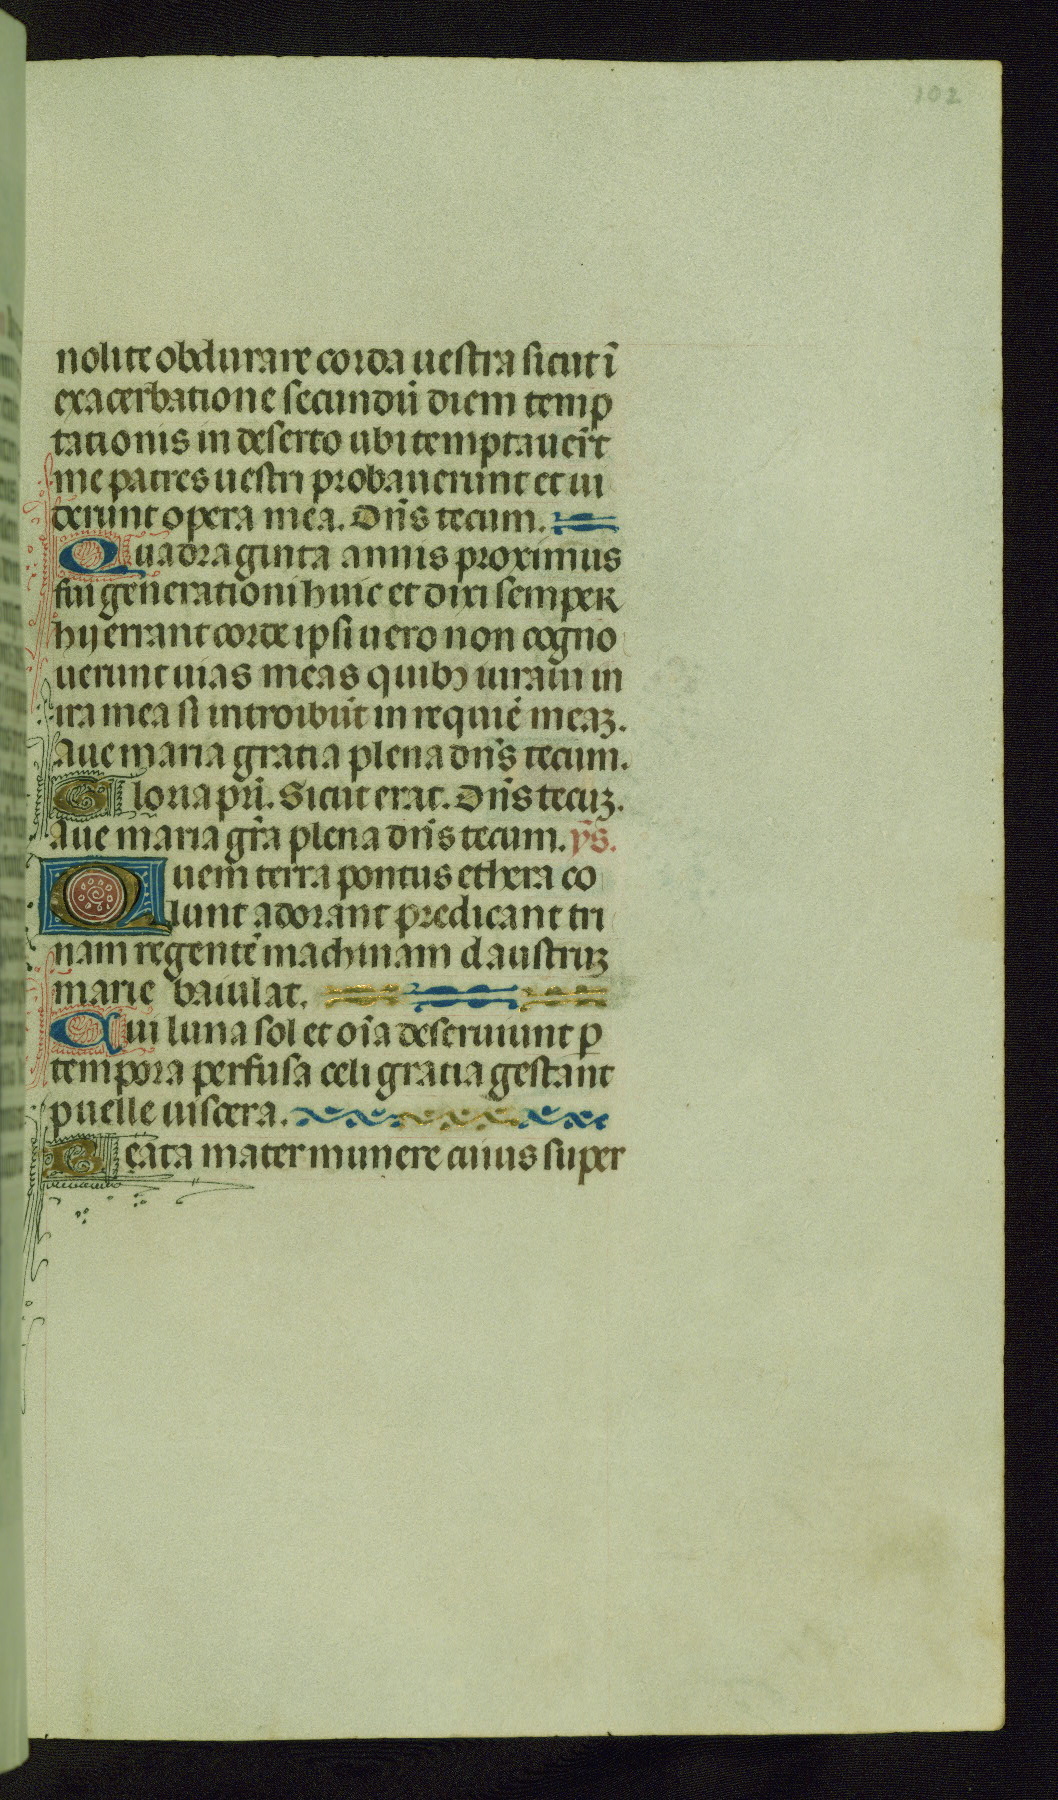 102
nolite obdurare corda uestra sicut ī
exacerbatione secundū diem temp
tationis in deserto ubi temptauer̄t
me patres uestri probauerunt et ui
derunt opera mea. Dn̄s tecum.
Quadraginta annis proximus
fui generationi huic et dixi semper
hij errant corde ipsi uero non cogno
uerunt uias meas quibꝰ iuraui in
ira mea si introibūt in requiē meaꝫ.
Aue maria gratia plena dn̄s tecum.
Gloria pr̄i. Sicut erat. Dn̄s tecuꝫ.
Aue maria gr̄a plena dn̄s tecum. ys̄.
Quem terra pontus ethera co
lunt adorant predicant tri
nam regentē machinam claustruꝫ
marie baiulat.
Qui luna sol et oīa deseruiunt ꝑ
tempora perfusa celi gratia gestant
puelle uiscera.
Beata mater munere cuius super